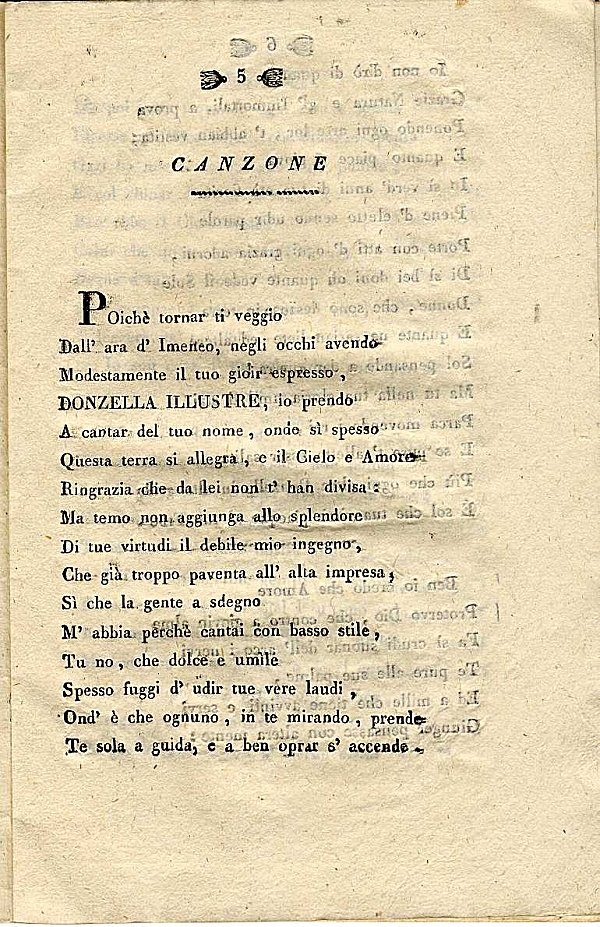 5
CANZONE
Poichè tornar ti veggio
Dall' ara d' Imeneo, negli occhi avendo
Modestamente il tuo gioir espresso,
DONZELLA ILLUSTRE, io prendo
A cantar del tuo nome, onde sì spesso
Questa terra si allegra, e il Cielo e Amore
Ringrazia che da lei non t' han divisa:
Ma temo non aggiunga allo splendore
Di tue virtudi il debile mio ingegno,
Che già troppo paventa all' alta impresa,
Sì che la gente a sdegno
M' abbia perchè cantai con basso stile,
Tu no, che dolce e umile
Spesso fuggi d' udir tue vere laudi,
Ond' è che ognuno, in te mirando, prende
Te sola a guida, e a ben oprar s' accende.